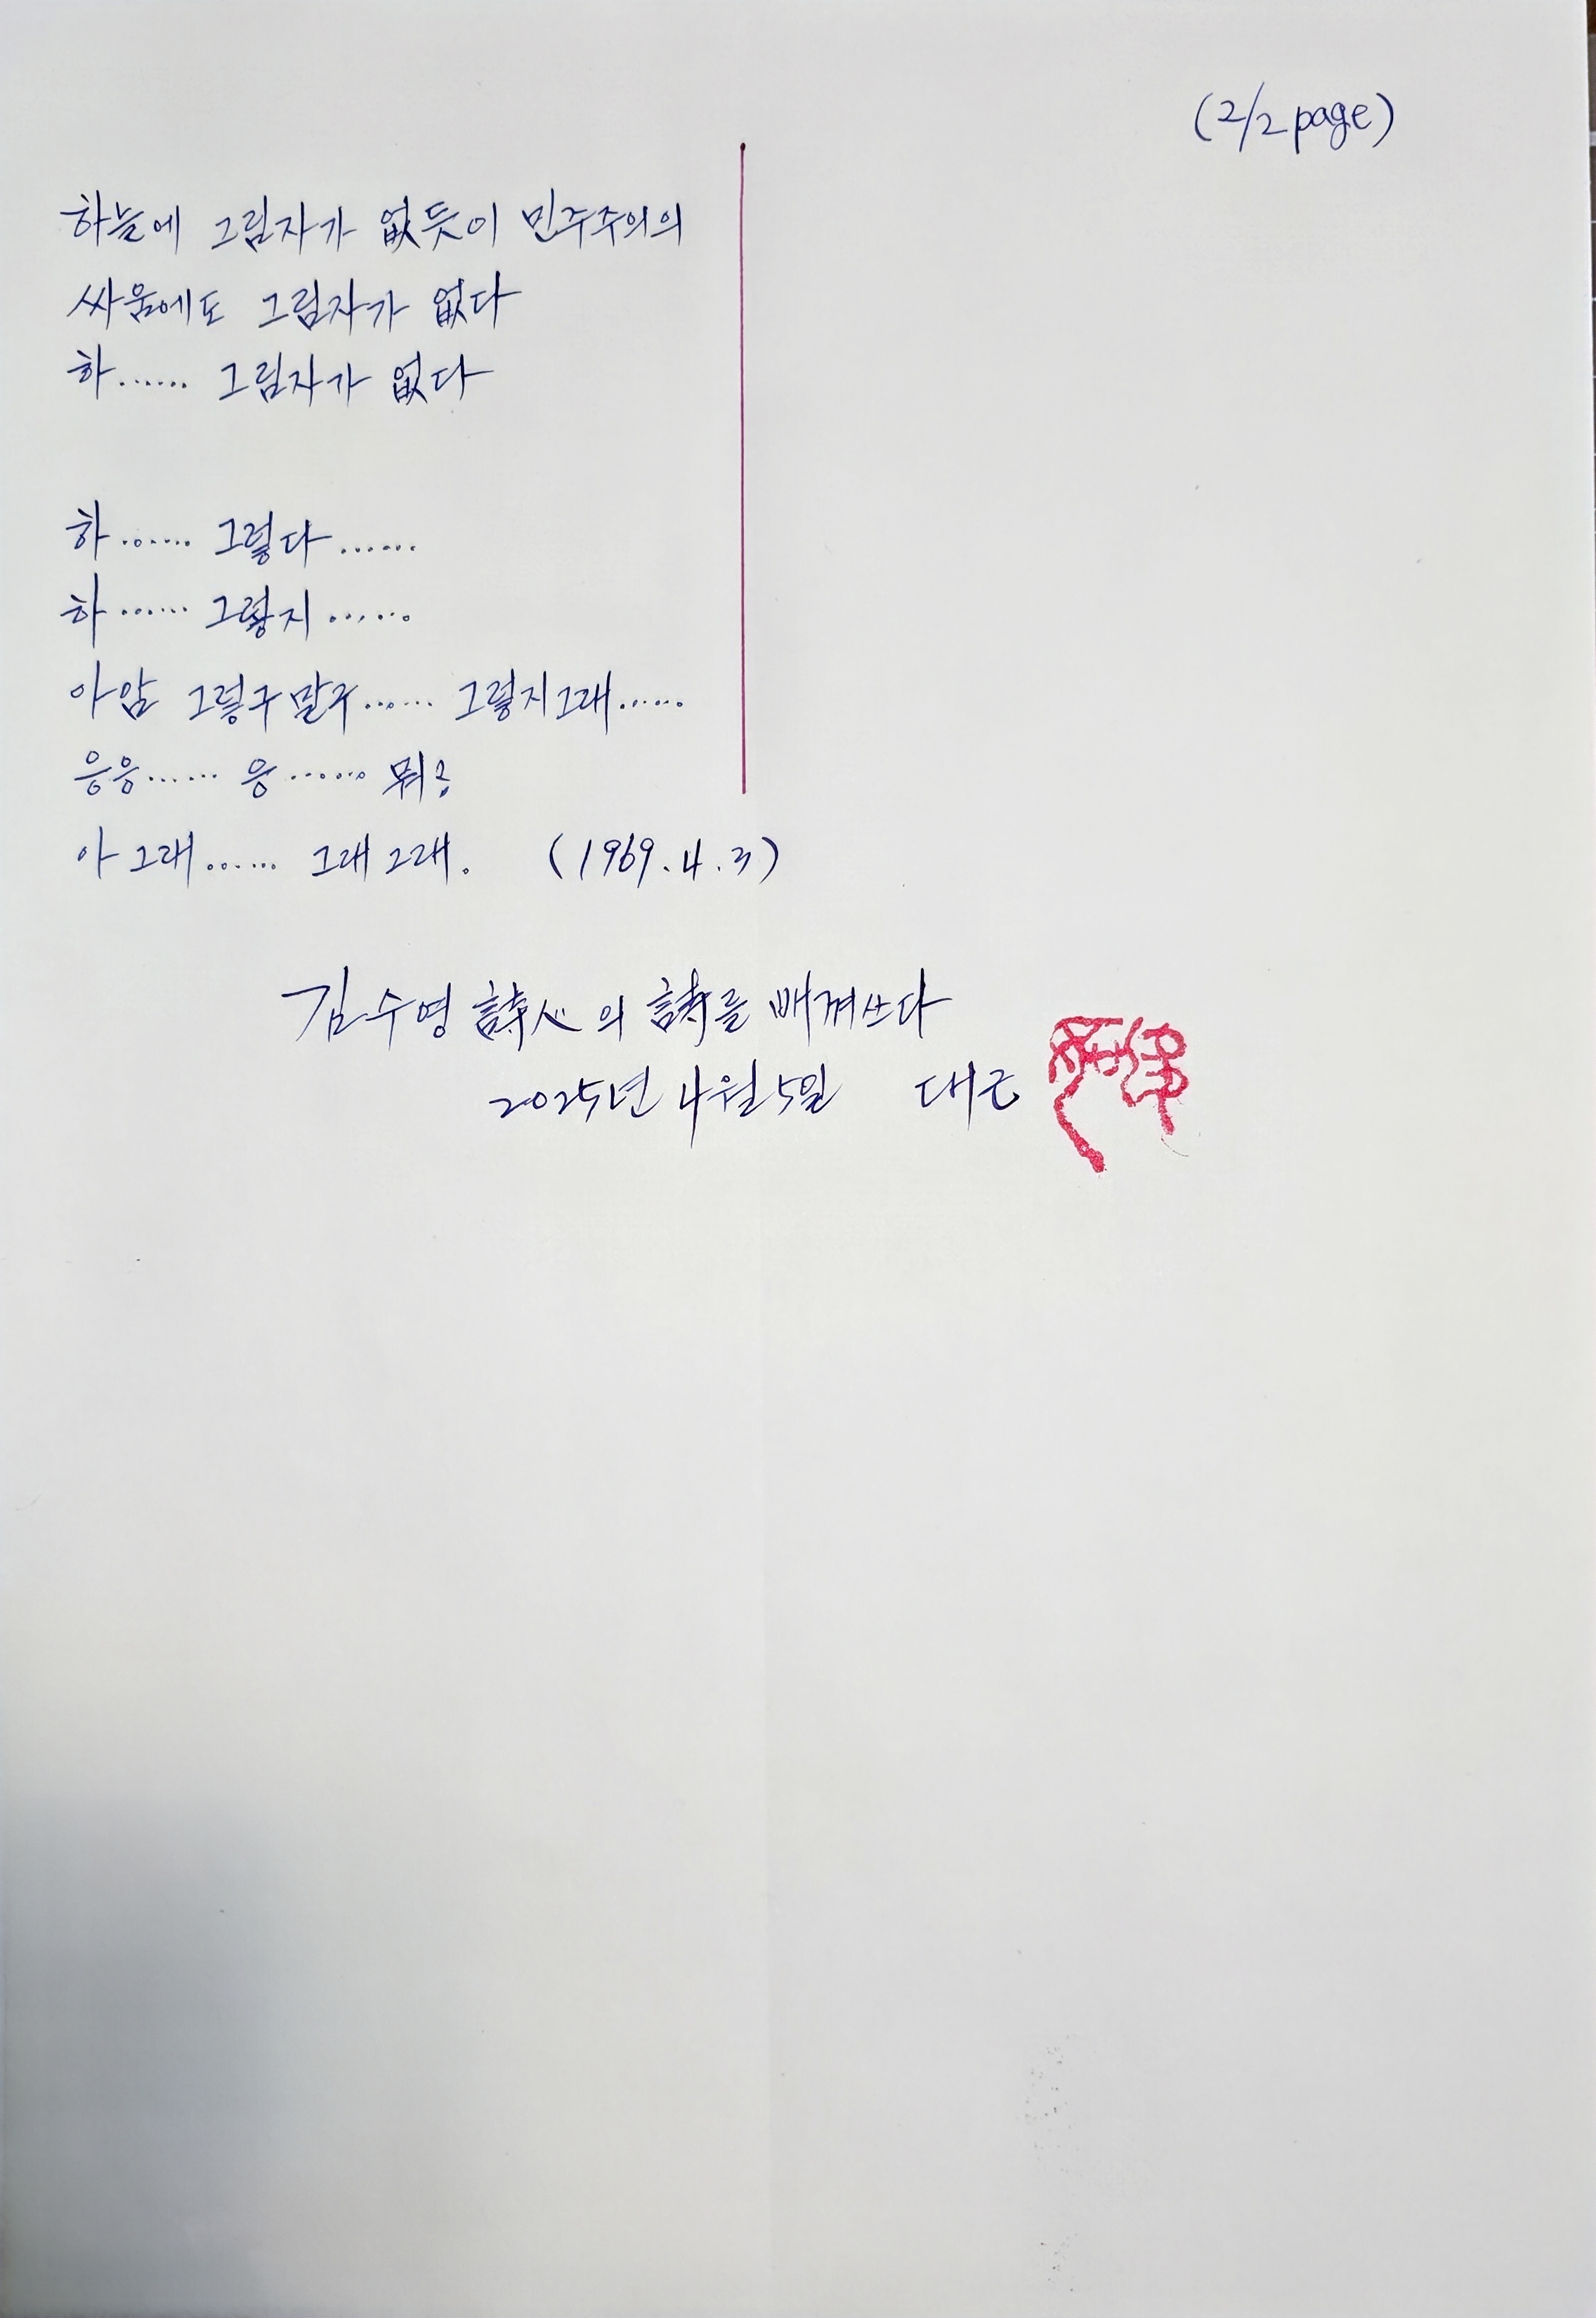 (2/2 page)
하늘에 그림자가 없듯이 민주주의의
싸움에도 그림자가 없다
하...... 그림자가 없다
하...... 그렇다......
하...... 그렇지......
아암 그렇구말구...... 그렇지그래......
응응...... 응...... 뭐?
아 그래...... 그래그래. (1969.4.3)
김수영 詩人의 詩를 베껴쓰다
2025년 4월 5일 대근